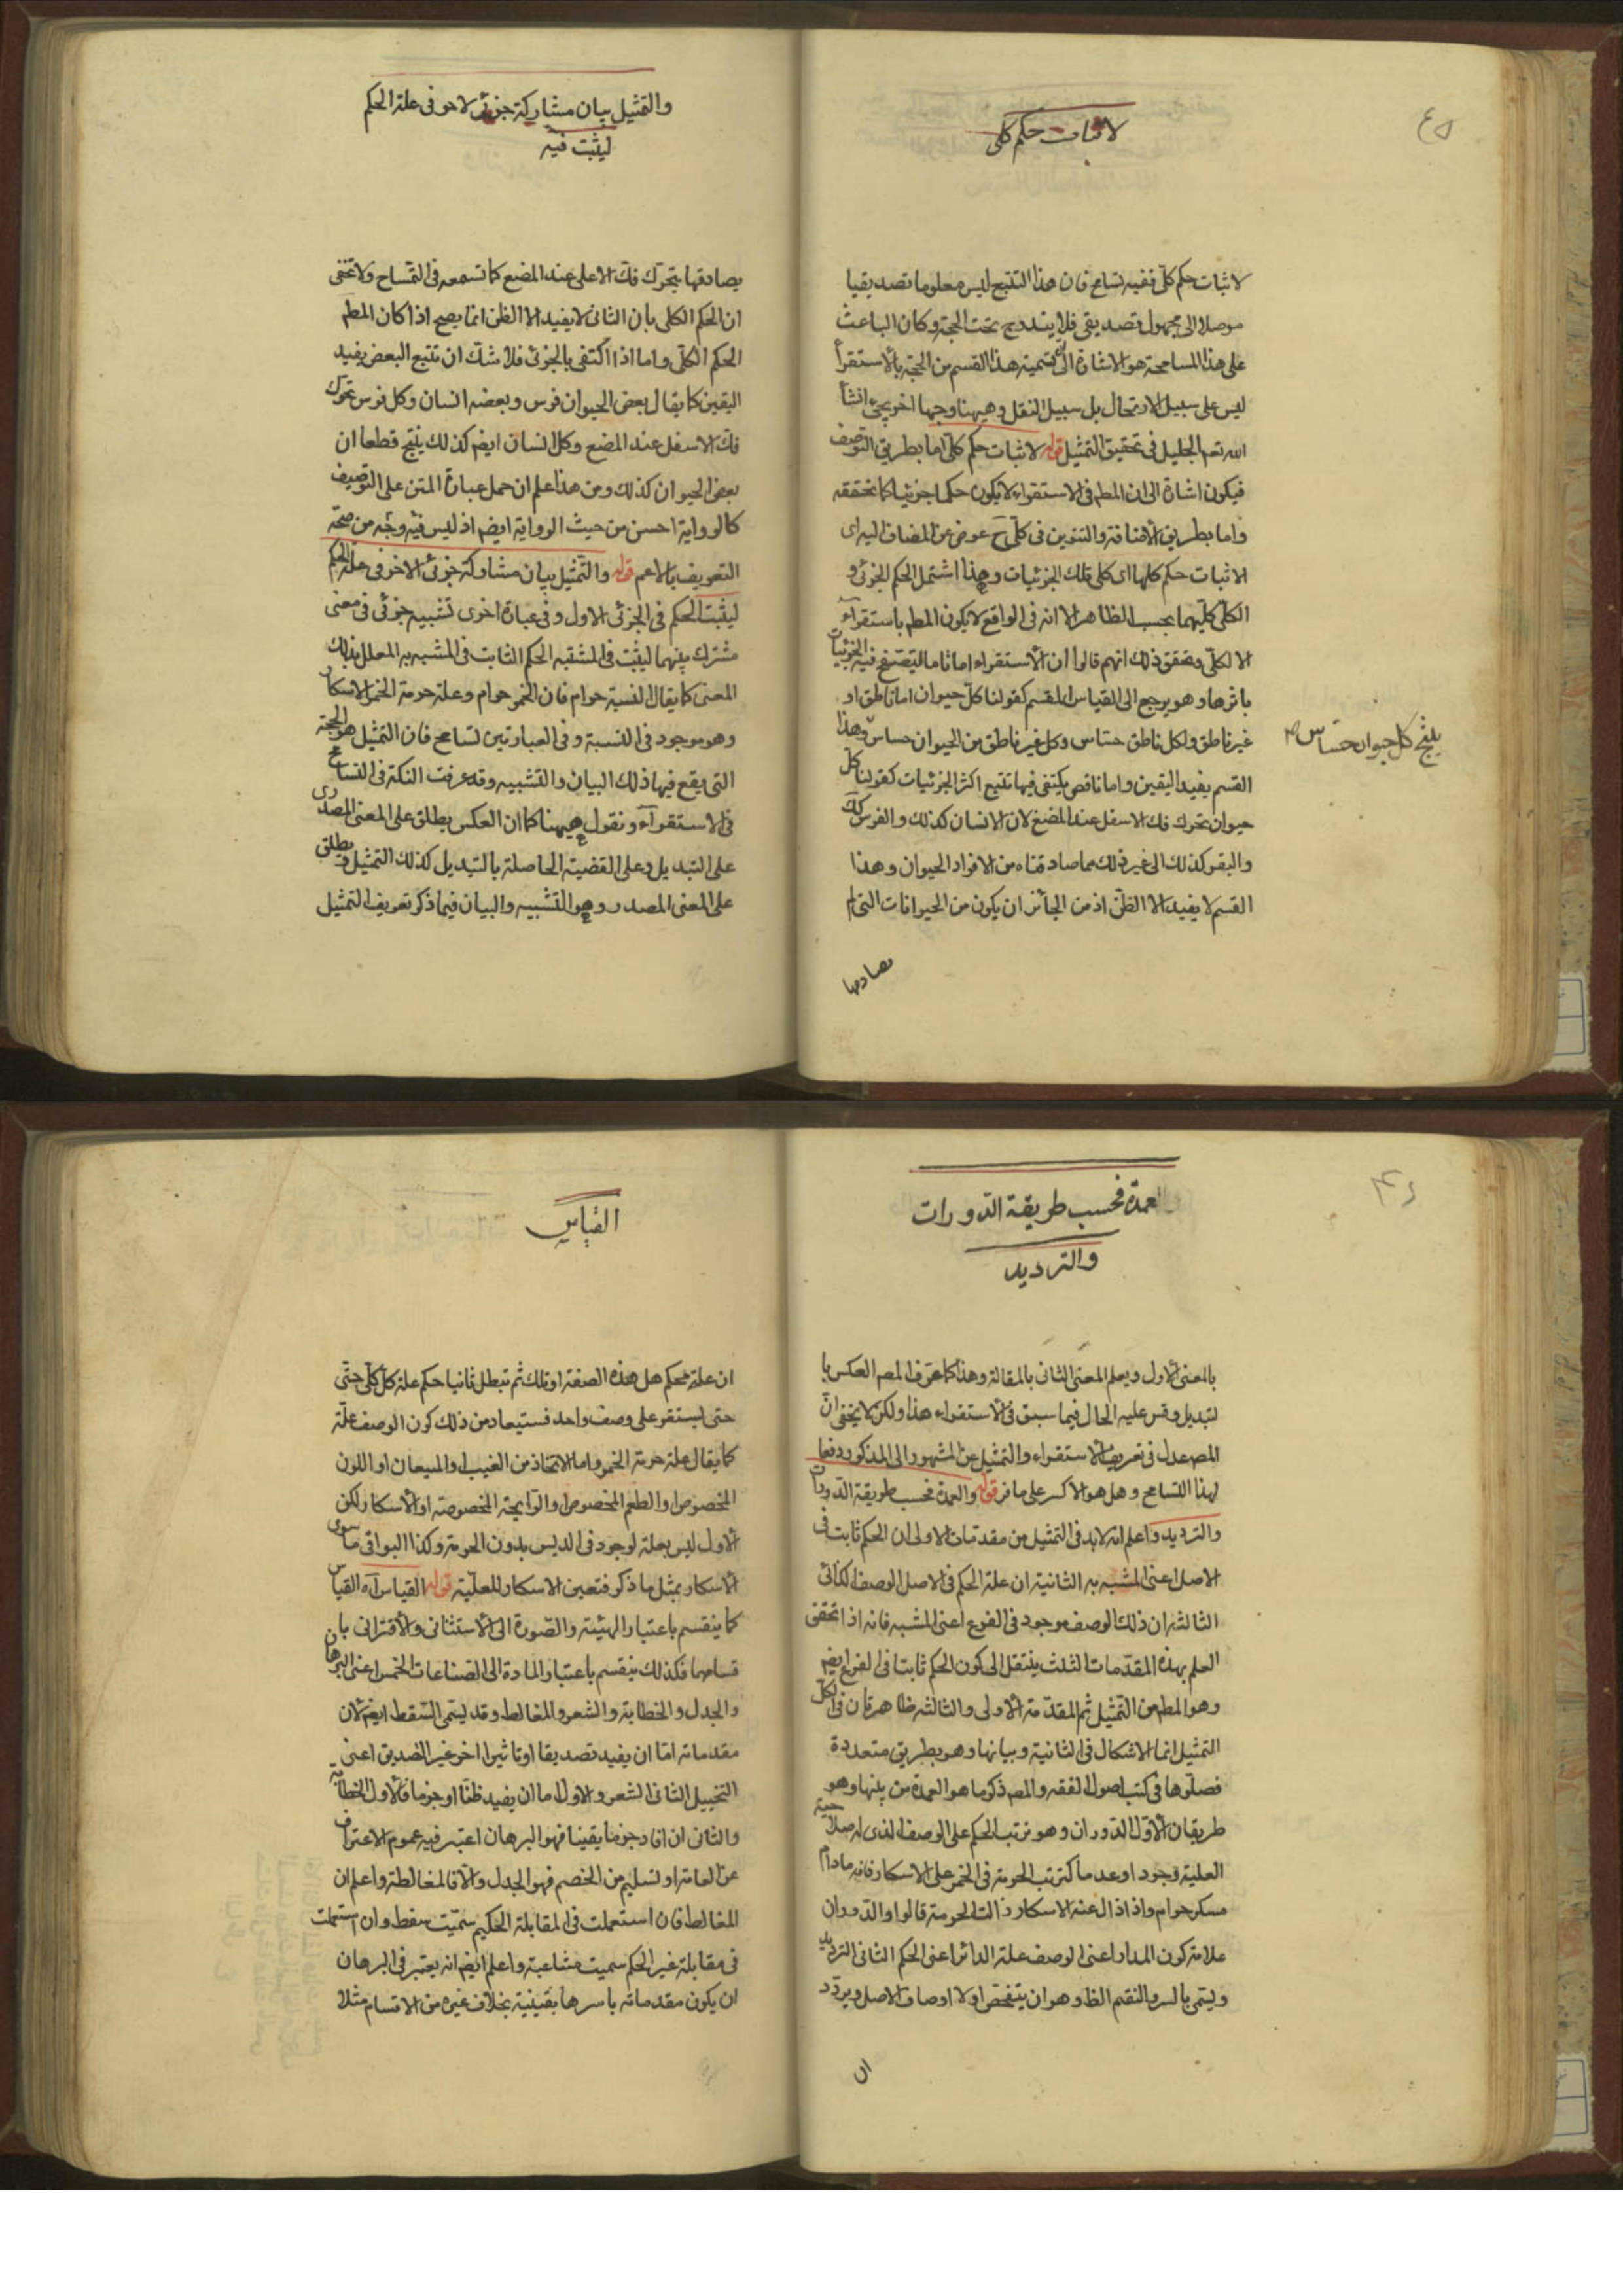 ٤٥
لاثبات حكم كلى
لاثبات حكم كلى ففيه تسامح فان هذا التتبع ليس معلوما تصديقيا
موصلا الى مجهول تصديقى فلا يندرج تحت الحجة وكان الباعث
على هذا المسامحة هو الاشارة الى ان تسمية هذا القسم من الحجة بالاستقرأ
ليس على سبيل الارتجال بل سبيل النقل وهيهنا وجها اخر يجئ انشأ
الله تعم الجليل فى تحقيق التمثيل قوله لاثبات حكم كلى اما بطريق التوصيف
فيكون اشارة الى ان المطم فى الاستقراء لا يكون حكما جزئيا كما نحققه
واما بطريق الاضافة والتنوين فى كلى ح عوض عن المضاف اليه اى
لاثبات حكم كلها اى كلى تلك الجزئيات وهذا اشتمل الحكم الجزئى و
الكلى كليهما بحسب الظاهر الا انه فى الواقع لا يكون المطم باستقراء
الا لكلى وتحقق ذلك انهم قالوا ان الاستقراء اما تاما ليتصفح فيه الجزئيات
باثرها وهو يرجع الى القياس المقسم كقولنا كل حيوان اما ناطق او
غير ناطق ولكل ناطق حساس وكل غير ناطق من الحيوان حساس وهذا
ينتج كل حيوان حساس
القسم يفيد اليقين واما ناقص يكتفى فيها تتبع اكثر الجزئيات كقولنا كل
حيوان يحرك فك الاسفل عند المضغ لان الانسان كذلك والفرس كك
والبقر كذلك الى غير ذلك مما صادفناه من الافراد الحيوان وهذا
القسم لا يفيد الا الظن اذ من الجائز ان يكون من الحيوانات التى لم
نصادفها
والتمثيل بيان مشاركة جزئى لاخر فى علة الحكم
ليثبت فيه
يصادفها يتحرك فك الاعلى عند المضع كما تسمعه فى التمساح ولا تخفى
ان الحكم الكلى بان الثانى لا يفيد الا الظن انما يصح اذا كان المطم
الحكم الكلى واما اذا اكتفى بالجزئى فلا شك ان تتبع البعض يفيد
اليقين كما يقال بعض الحيوان فرس وبعضه انسان وكل فرس تحرك
فك الاسفل عند المضع وكل انسان ايضم كذلك ينتج قطعا ان
بعض الحيوان كذلك ومن هذا علم ان حمل عبارة المتن على التوصيف
كالرواية احسن من حيث الرواية ايضم اذ ليس فيه وجه من صحة
التعريف بالاعم قوله والتمثيل بيان مشاركة جزئى الاخر فى علة الحكم
ليثبت الحكم فى الجزئى الاول وفى عبارة اخرى تشبيه جزئى فى معنى
مشترك بينهما ليثبت فى المشبه الحكم الثابت فى المشبه به المعلل بذلك
المعنى كما يقال النسبة حرام فان الخمر حرام وعلة حرمة الخمر الاسكار
وهو موجود فى النسبة وفى العبارتين تسامح فان التمثيل هو الحجة
التى يقع فيها ذلك البيان والتشبيه وقد عرفت النكتة فى التسامح
فى الاستقرآء ونقول هيهنا كما ان العكس يطلق على المعنى المصدرى
على التبديل وعلى القضية الحاصلة بالتبديل كذلك التمثيل يطلق
على المعنى المصدر وهو التشبيه والبيان فيما ذكر تعريف التمثيل
٤٦
العمدة فحسب طريقة الدورات
والترديد
بالمعنى الاول ويعلم المعنى الثانى بالمقالة وهذا كما عرف المصم العكس با
لتبديل وقس عليه الحال فيما سبق فى الاستقراء هذا ولكن لا يخفى ان
المصم عدل فى تعريف الاستقراء والتمثيل عن المشهور الى المذكور دفعا
لهذا التسامح وهل هو الا كسر على ما فر قوله والعمدة فحسب طريقة الدورات
والترديد واعلم انه لابد فى التمثيل من مقدمات الاولى ان الحكم ثابت فى
الاصل اعنى المشبه به الثانية ان علة الحكم فى الاصل الوصف الكذائى
الثالثه ان ذلك الوصف موجود فى الفرع اعنى المشبه فانه اذا تحقق
العلم بهذه المقدمات الثلث ينتقل الى كون الحكم ثابتا فى الفرع ايضم
وهو المطم من التمثيل ثم المقدمة الاولى والثالثه ظاهرتان فى لكل
التمثيل انما الاشكال فى الثانية وبيانها وهو بطريق متعددة
فصلوها فى كتب اصول الفقه والمصم ذكر ما هو العمدة من بينها وهو
طريقان الاول الدوران وهو ترتب الحكم على الوصف الذى له صلاحية
العلية وجود او عدما كترتب الحرمة فى الخمر على الاسكار فانه مادام
مسكر حرام واذا زال عنه الاسكار زالت الحرمة قالوا والدوران
علامة كون المدار اعنى الوصف علة الدائر اعنى الحكم الثانى الترديد
ويسمى بالسر والتقم الظ وهو ان يتفحص اولا اوصاف الاصل ويردد
ان
القياس
ان علة محكم هل هذه الصفة او تلك ثم تبطل ثانيا حكم علة كل كلى حتى
حتى يستقر على وصف واحد فستيعاد من ذلك كون الوصف علة
كما يقال علة حرمة الخمر واما الاتخاذ من الغيب والميعان او اللون
المخصوص او الطعم المخصوص او الرايحة المخصوصة او الاسكار لكن
الاول ليس بعلة لوجود فى الدبس بدون الحرمة وكذا البواقى ما سوى
الاسكار بمثل ما ذكر فتعين الاسكار للعلية قوله القياس آه القياس
كما ينقسم باعتبار الهيئة والصورة الى الاستثنائى والاقترانى بان
قسامهما فكذلك ينقسم باعتبار المادة الى الصناعات الخمس اعنى البرها
والجدل والخطابة والشعر والمغالط وقد يسمى السقط ايضم لان
مقدماته اما ان يفيد تصديقا او تاثيرا اخر غير التصديق اعنى
التخييل الثانى الشعر والاول اما ان يفيد ظنا او جزما فالاول الخطابة
والثانى ان افاد جزما يقينا فهو البرهان اعتبر فيه عموم الاعتراف
عن العامة او تسليم من الخصم فهو الجدل والا فالمغالطة واعلم ان
المغالط فان استعملت فى المقابلة الحكيم سميت سفط وان استعملت
فى مقابلة غير الحكم سميت مشاعبة واعلم ايضم انه يعتبر فى البرهان
ان يكون مقدماته باسرها يقينية بخلاف غيره من الاقسام مثلا